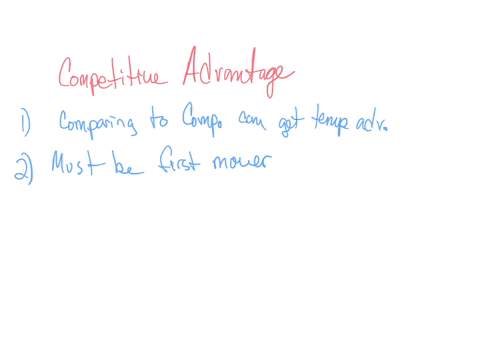 Competitive Advantage
1) Comparing to Comp. can get temp adv.
2) Must be first mover